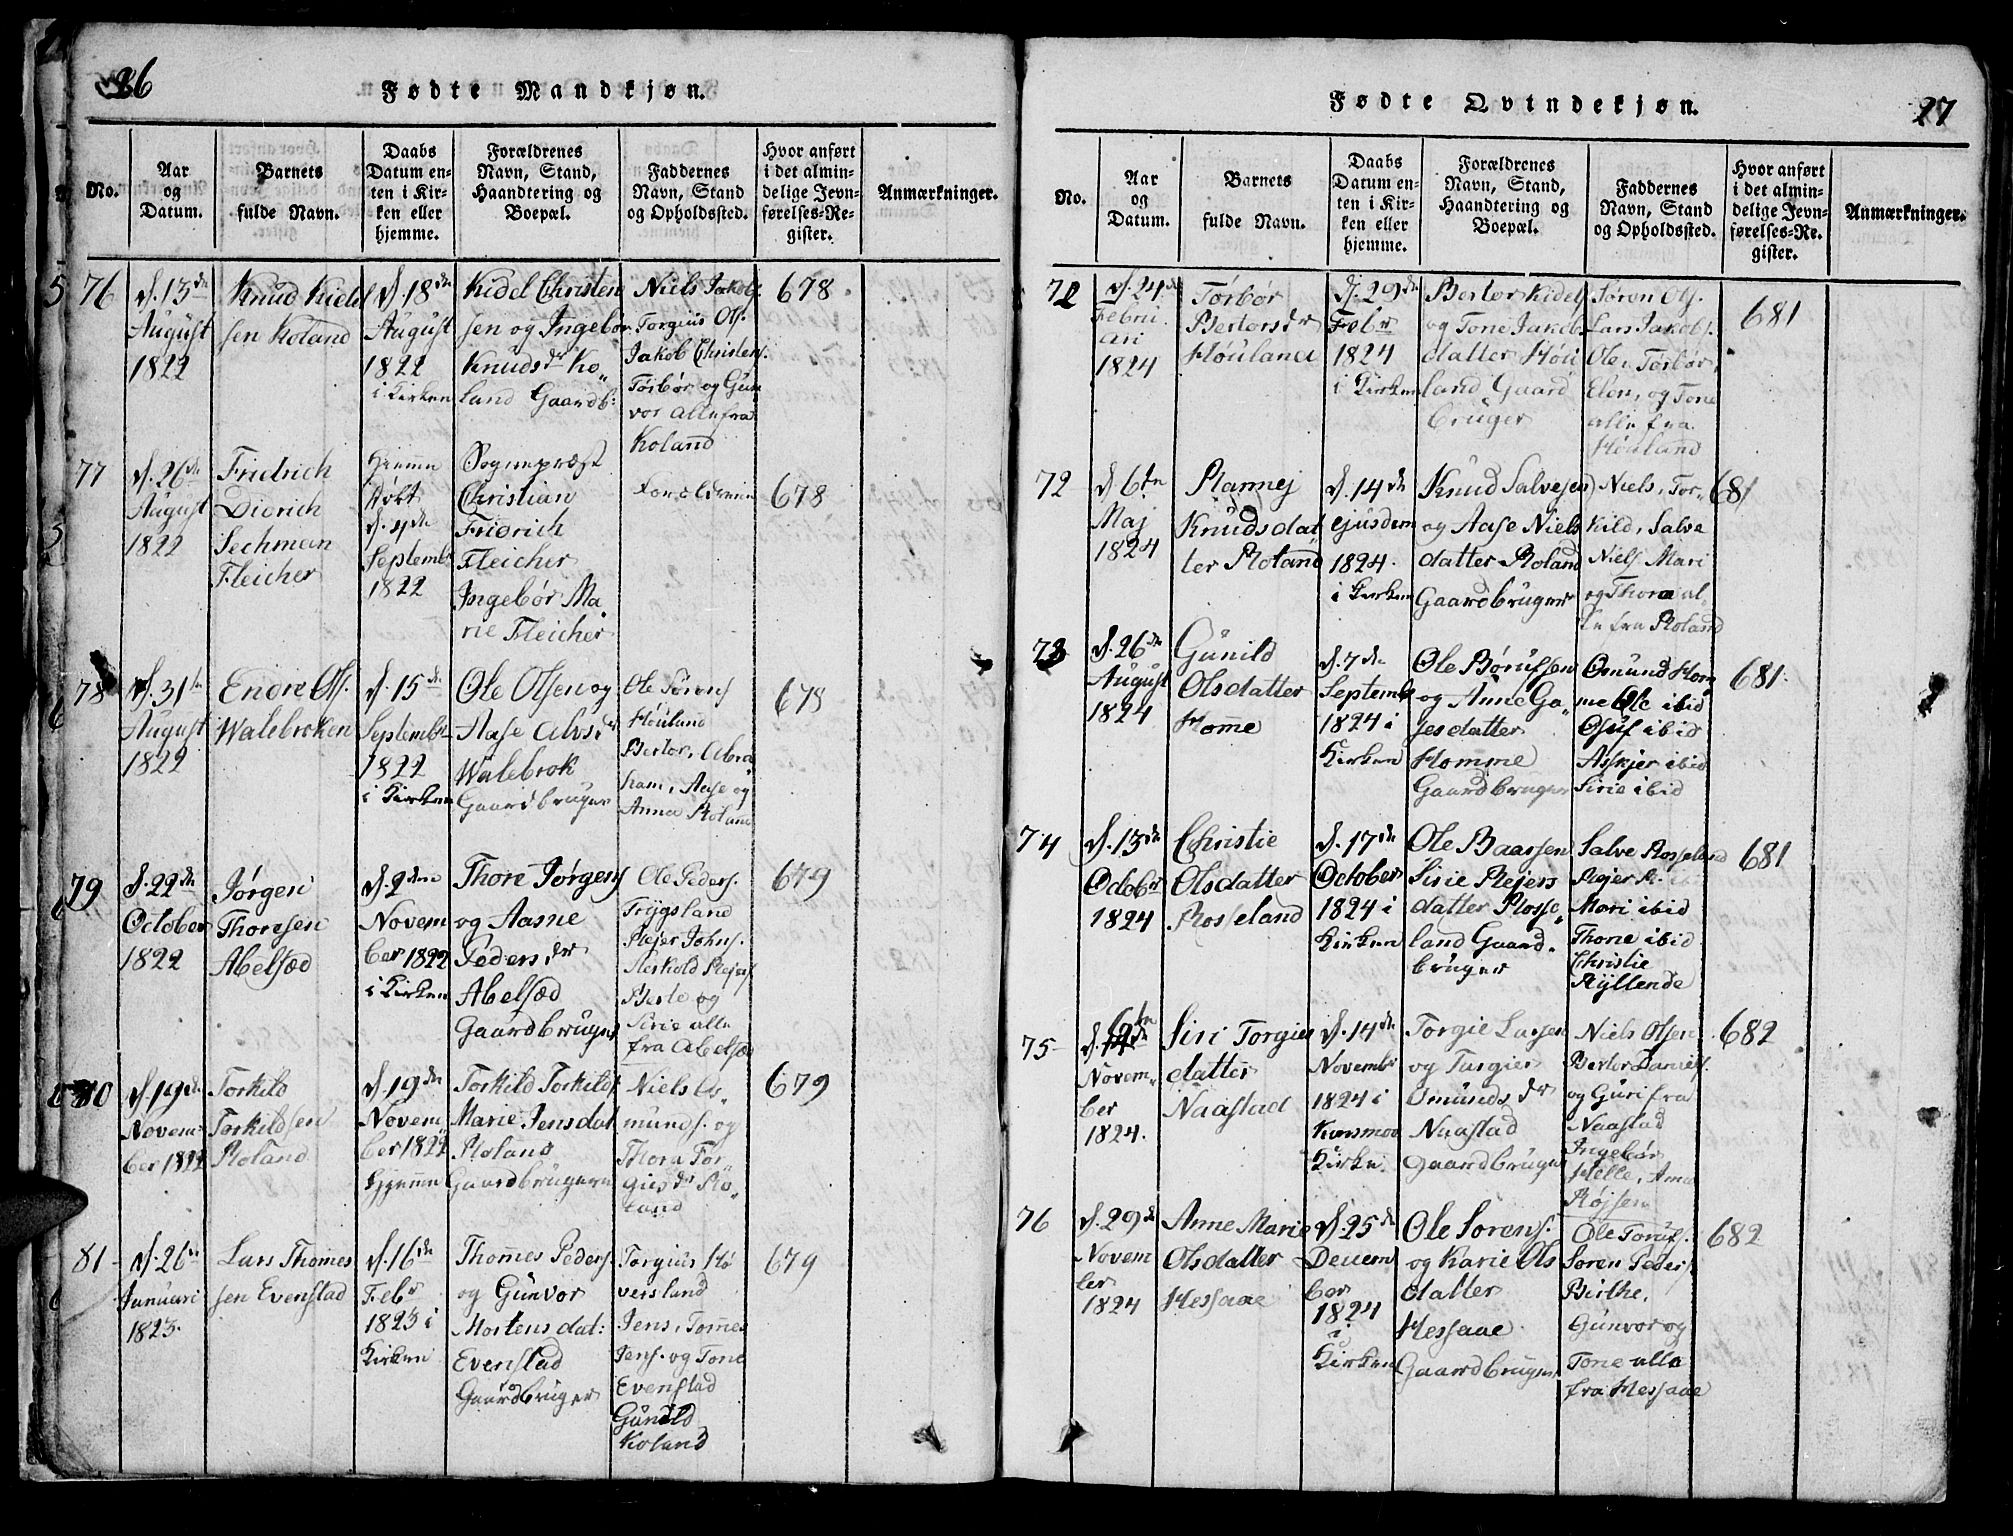 26
Fødte Mandkjøn.
No.
Aar
og
Datum.
Barnets
fulde Navn.
Daabs
Datum en-
ten i Kir-
ken eller
hjemme.
Forældrenes
Navn, Stand,
Haandtering og
Boepæl.
Faddernes
Navn, Stand
og Opholdssted.
Hvor anført
i det almin-
delige Jevn-
førelses-Re-
gister.
Anmærkninger.
76
d. 13de
August
1822
Knud Kidel
sen Koland
d. 18de
August
1822
i Kirken
Kidel Christen
sen og Ingebor
Knudsdr Ko„
land Gaardb:
Niels Jakobs.
Torgius Ols.
Jakob Christens.
Torbør og Gun
vor alle fra
Koland
678
77
d. 26de
August
1822
Fridrich
Didrich
Sechman
Fleicher
Hjemme
døbt
d. 4de
Septemb.
1822
Sognepræst
Christian
Fridrich
Fleicher
Ingebór Ma„
rie Fleicher
Forældrene
678
78
d. 31te
August
1822
Endre Ols.
Walebroken
d. 15de
Septembr
1822
i Kirken
Ole Olsen og
Aase Alvsdr
Walebrok
Gaardbruger
Ole Sørens
Høuland
Bertor, Abra
ham, Aase og
Anna Roland
678
79
d. 22de
October
1822
Jørgen
Thoresen
Abelsæd
d. 2den
Novem
ber 1822
i Kirken
Thore Jørgens
og Aasne
Peders.dr
Abelsæd
Gaardbruger
Ole Peders.
Trygsland
Rejer Johns.
Aerkold Rejers.
Berte og
Sirie alle
fra Abelsæd
679
80
d. 19de
Novem„
ber 1822
Torkild
Torkildsen
Roland
d. 19de
Novem„
ber 1822
Hjemme
Torkild Torkilds
Marie Jensdat
Roland
Gaardbrugere
Niels Os„
munds. og
Thora Tor„
giusdr Ro„
land
679
81
d. 26de
Januari
1823.
Lars Thomes
sen Evenstad
d. 16de
Febr
1823 i
Kirken
Thomes Peders.
og Gunvor
Mortens dat:
Evenstad
Gaardbruger
Torgius Hø
versland
Jens, Tomes
Jens. og Tone
Evenstad
Gunild
Koland
679
27
Fødte Qvindekjøn.
No.
Aar
og
Datum.
Barnets
fulde Navn.
Daabs
Datum en-
ten i Kir-
ken eller
hjemme.
Forældrenes
Navn, Stand,
Haandtering og
Boepæl.
Faddernes
Navn, Stand
og Opholdssted.
Hvor anført
i det almin-
delige Jevn-
førelses-Re-
gister.
Anmærkninger.
d. 24de
Febru
ari
1824
Torbør
Bertorsdr
Høuland
d. 29de
Febr
1824
i Kirken
Bertor Kidels
og Tone Jakobs
datter Høu
land Gaard
bruger
Søren Ols.
Lars Jakobs.
Ole, Torbør,
Elen, og Tone
alle fra
Høuland
681
72
d. 6te
Maj
1824
Rannej
Knudsdat
ter Roland
d. 14de
ejusdem
1824.
i Kirken
Knud Salvesen
og Aase Niels
datter Roland
Gaardbruger
Niels, Tor„
kild, Salve
Niels. Mari
og Thora al„
le fra Roland
681
73
d. 26de
August
1824
Gunild
Olsdatter
Home
d. 7de
Septemb
1824 i
Kirken
Ole Børufsen
og Anne Ga„
sesdatter
Homme
Gaardbruger
Osmund Hom
me Ole ibid
Osuf ibid
Askjer ibid
Sirie ibid
681.
74
d. 13de
Octobr
1824
Christie
Olsdatter
Rosseland
d. 17de
October
1824 i
Kirken
Ole Baarsen
Sirie Rejers
datter Rosse„
land Gaard„
bruger
Salve Rosseland
Rejer R. ibid
Mari ibid
Thorie ibid
Christie
Ryllende
681
75
d. 6te
Novem„
ber
1824.
Siri Torgius
datter
Naastad
d. 14de
Novembr
1824 i
Kirke
Torgie Larsen
og Turgier
Osmunds dr
Naastad
Gaardbruger
Niels Olsen
Bertor Daniels.
og Guri fra
Naastad
Ingebór
Helle, Anne
Røjsen
682
76
d. 29de
Novem
ber
1824
Anne Marie
Olsdatter
Hessaae
d. 25de
Decem
ber
1824
i
Kirken
Ole Sorens.
og Karie Ols
datter
Hessaae
Gaardbruger
Ole Toruf.
Soren Peder
Birthe,
Gunvor og
Tone alle
fra Hessaae
682